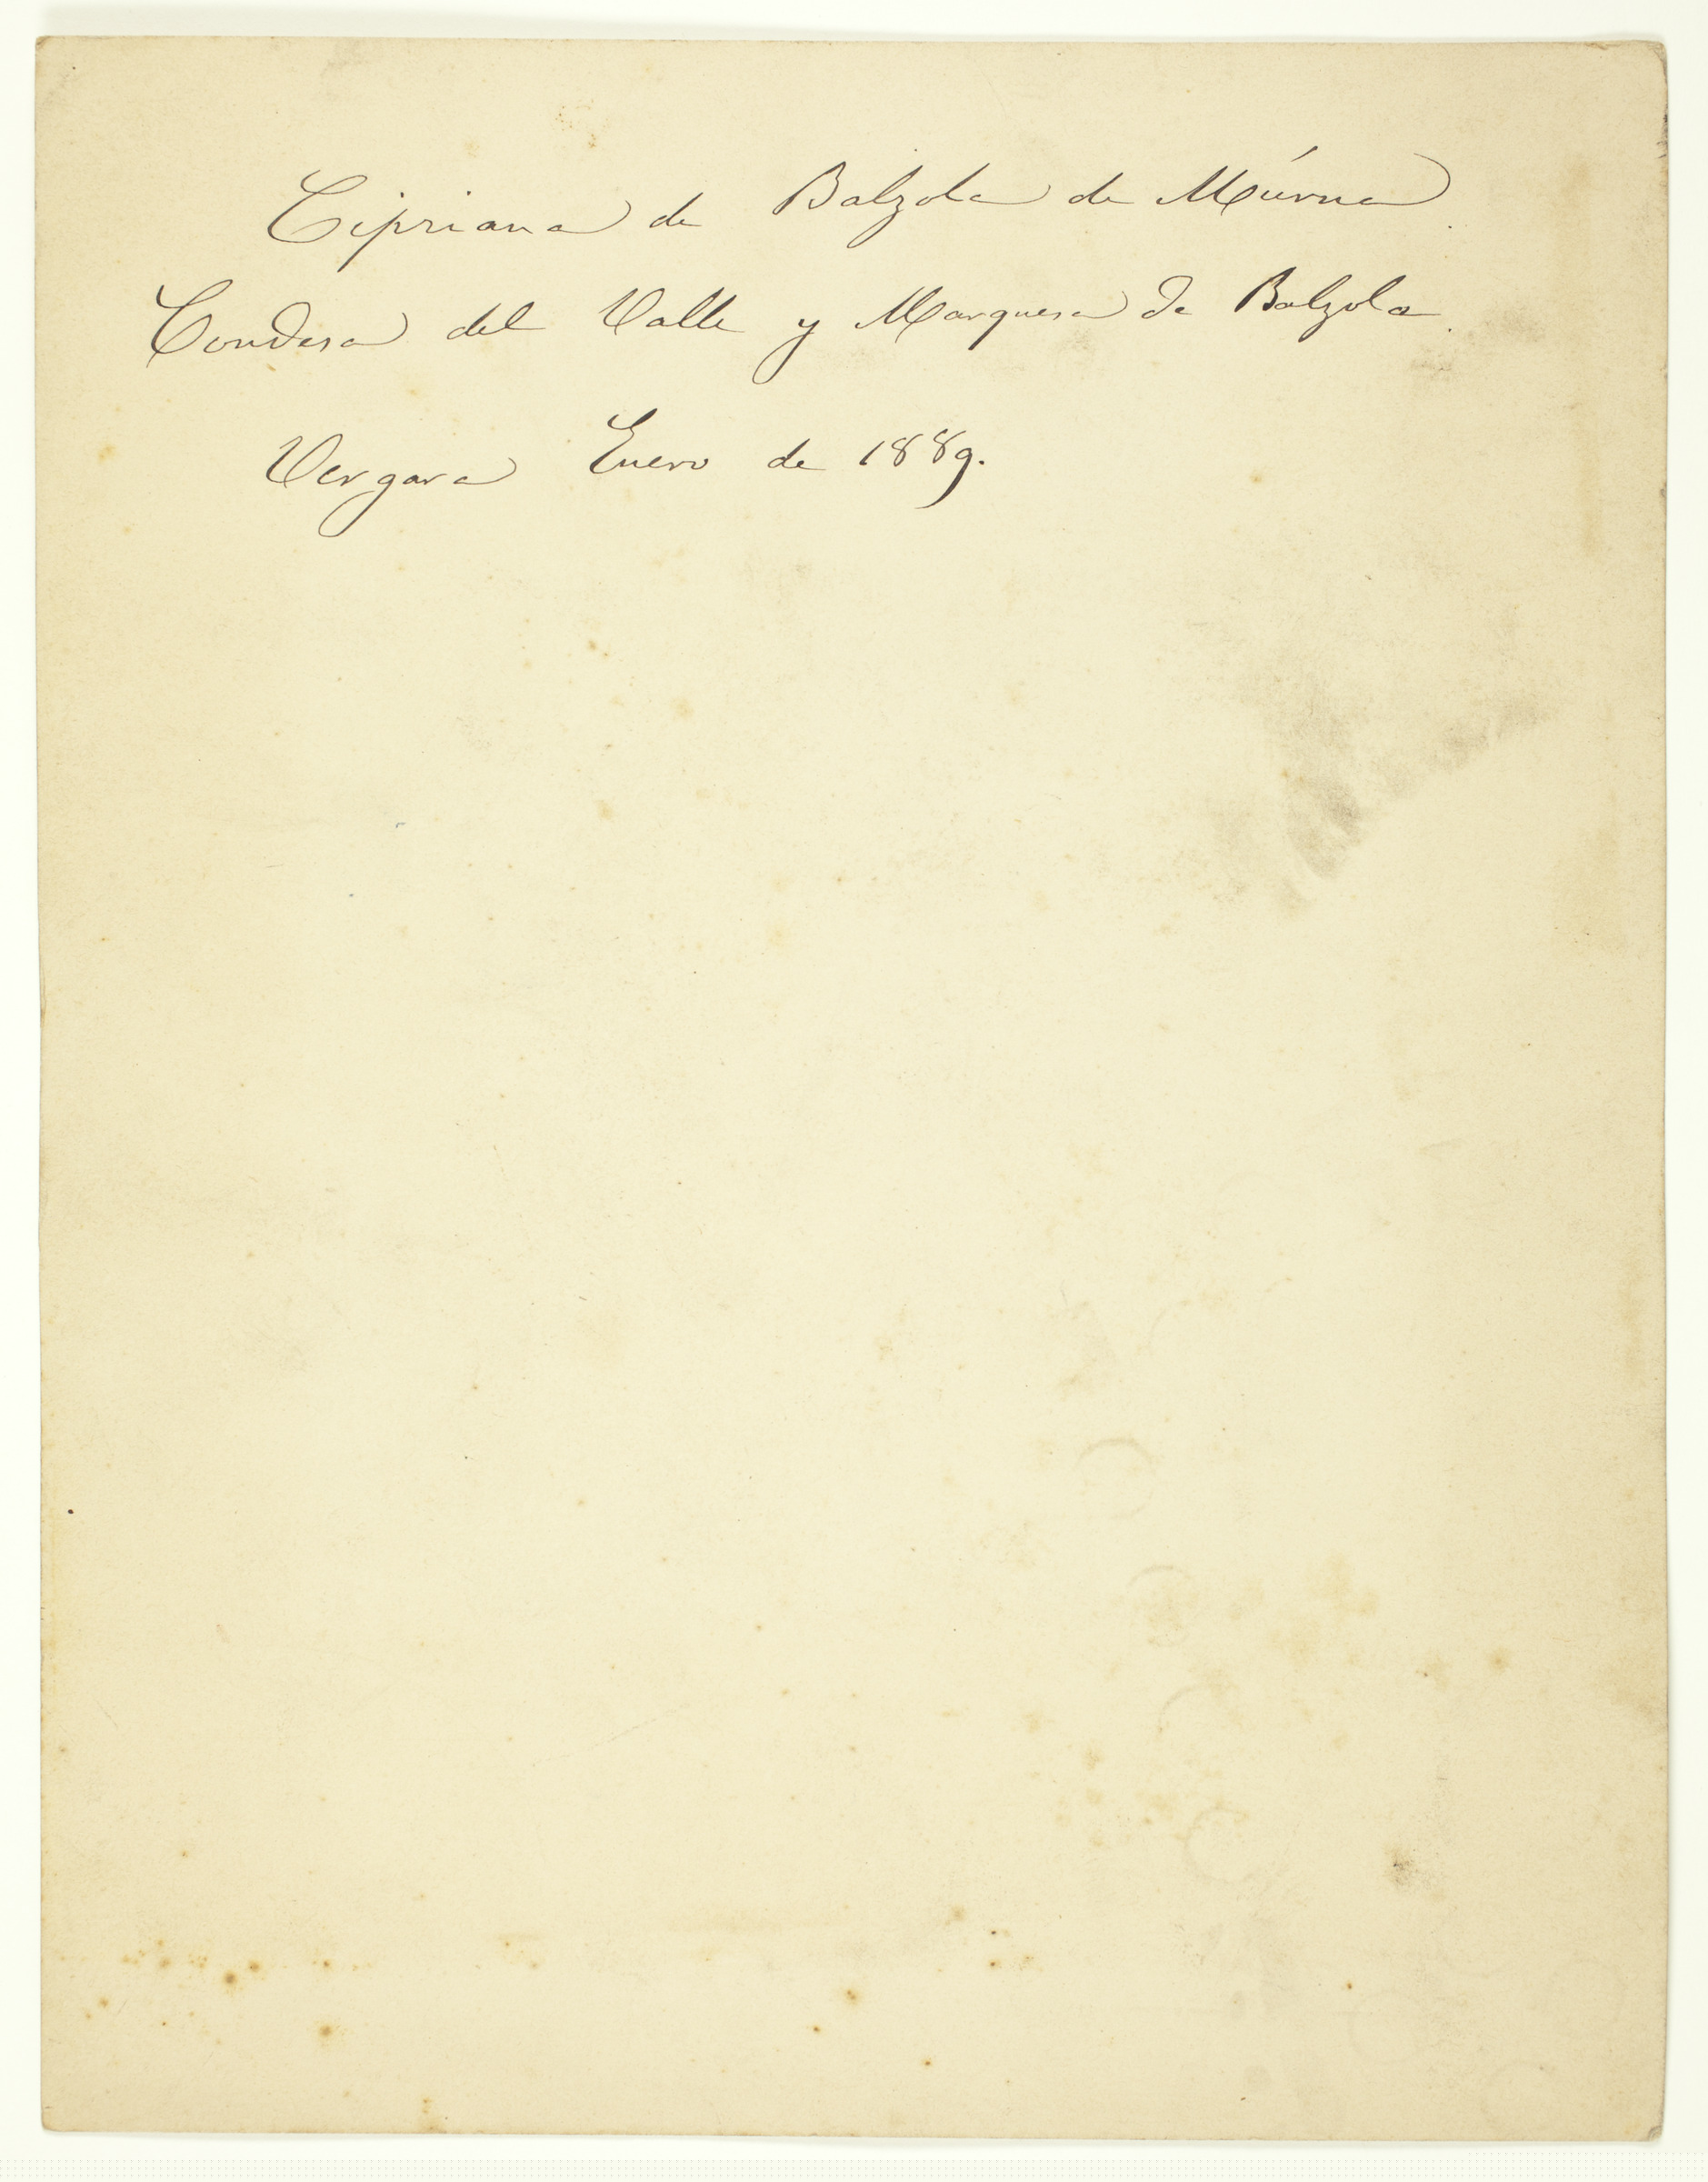 Cipriana de Balzola de Múrua
Condesa del Valle y Marquesa de Balzola.
Vergara Enero de 1889.